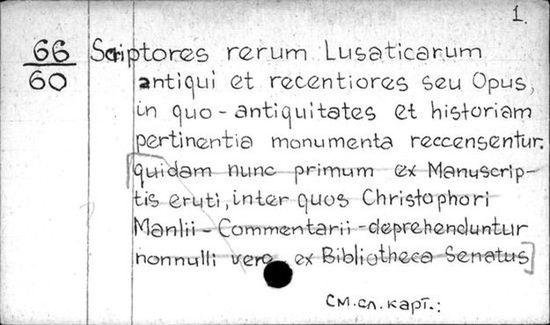 1.
66
60
Scriptores rerum Lusaticarum
antiqui et recentiores seu Opus,
in quo - antiquitates et historiam
pertinentia monumenta reccensentur.
[quidam nunc primum ex Manuscrip-
tis eruti, inter quos Christophori
Manlii - Commentarii - deprehenduntur
nonnulli vero ex Bibliotheca Senatus]
См. сл. карт.: